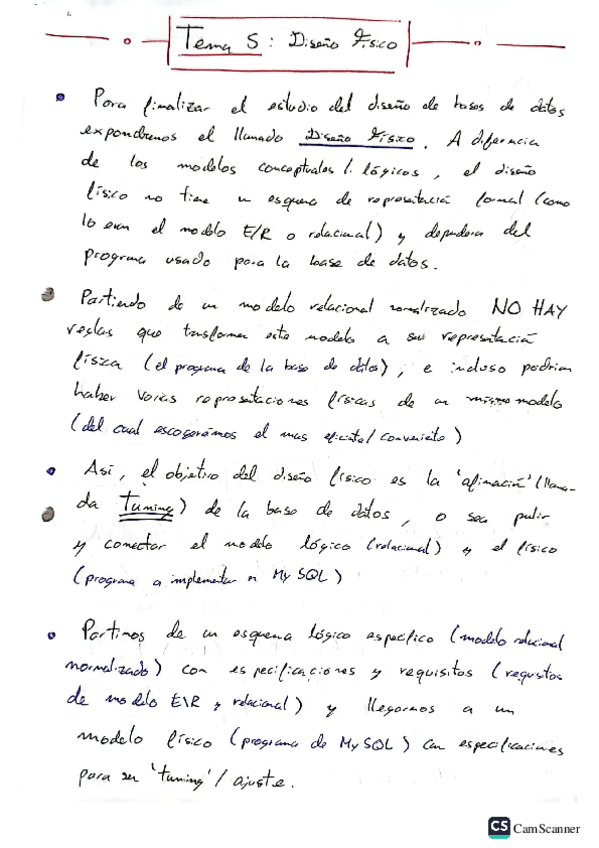 Tema 5: Diseño Físico
• Para finalizar el estudio del diseño de bases de datos
expondremos el llamado Diseño Físico. A diferencia
de los modelos conceptuales/lógicos, el diseño
físico no tiene un esquema de representación formal (como
lo eran el modelo E/R o relacional) y dependera del
programa usado para la base de datos.
Partiendo de un modelo relacional normalizado NO HAY
reglas que transformen este modelo a su representación
física (el programa de la base de datos), e incluso podrian
haber varias representaciones físicas de un mismo modelo
(del cual escogeremos el mas eficiente/conveniente)
• Asi, el objetivo del diseño físico es la 'afinación' (llama-
da Tuning) de la base de datos, o sea pulir
y conectar el modelo lógico (relacional) y el físico
(programa a implementar en MySQL)
• Partimos de un esquema lógico especifico (modelo relacional
normalizado) con especificaciones y requisitos (requisitos
de modelo E\R y relacional) y llegamos a un
modelo físico (programa de MySQL) con especificaciones
para ser 'tuning'/ajuste.
CS CamScanner